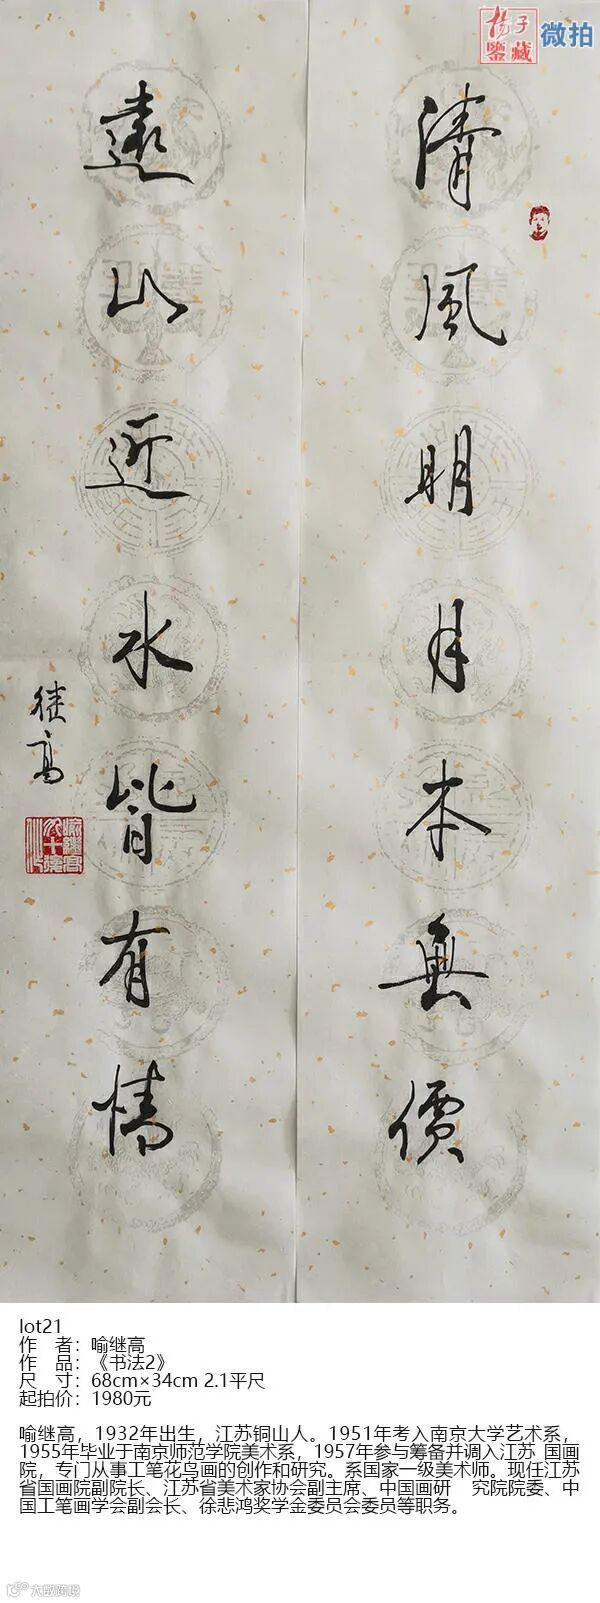 揚子
鑒藏
微拍
清風明月本無價
遠山近水皆有情
继高
lot21
作 者：喻继高
作 品：《书法2》
尺 寸：68cm×34cm 2.1平尺
起拍价：1980元
喻继高，1932年出生，江苏铜山人。1951年考入南京大学艺术系，
1955年毕业于南京师范学院美术系，1957年参与筹备并调入江苏 国画
院，专门从事工笔花鸟画的创作和研究。系国家一级美术师。现任江苏
省国画院副院长、江苏省美术家协会副主席、中国画研 究院院委、中
国工笔画学会副会长、徐悲鸿奖学金委员会委员等职务。
大数跨境